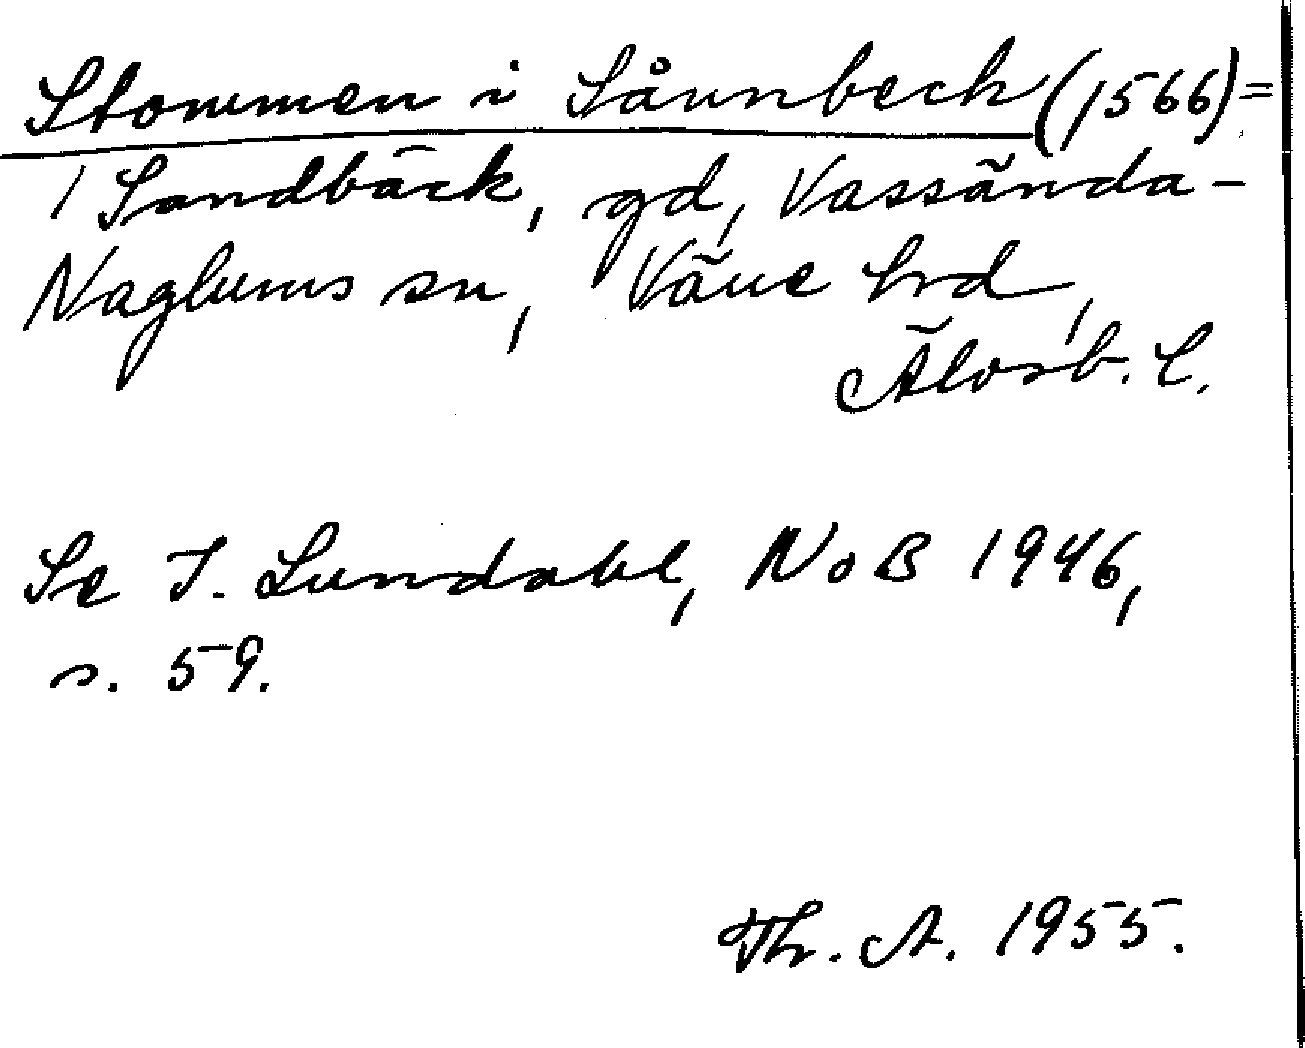 Stommen i Sånnbech (1566) =
/ Sandbäck, gd, Vassända-
Naglums sn, Väne hd,
Älvsb. l.
Se I. Lundahl, NoB 1946,
s. 59.
Th. A. 1955.